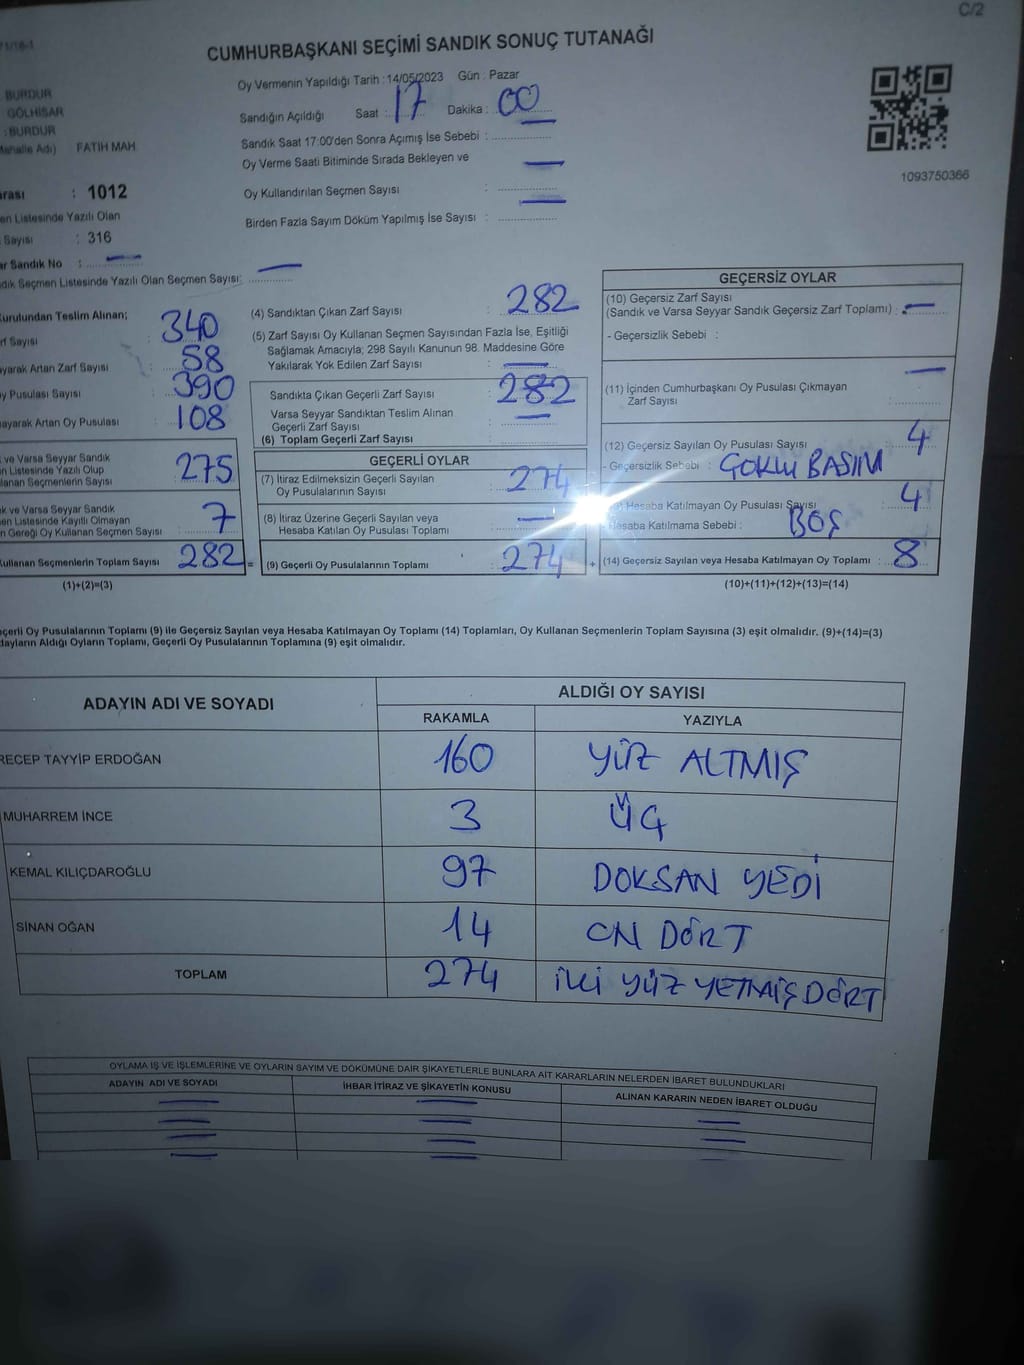 C/2
CUMHURBAŞKANI SEÇİMİ SANDIK SONUÇ TUTANAĞI
Oy Vermenin Yapıldığı Tarih : 14/05/2023 Gün : Pazar
Sandığın Açıldığı Saat : 17 Dakika : 00
Sandık Saat 17:00'den Sonra Açımış İse Sebebi :
Oy Verme Saati Bitiminde Sırada Bekleyen ve
Oy Kullandırılan Seçmen Sayısı :
Birden Fazla Sayım Döküm Yapılmış İse Sayısı :
1093750366
BURDUR
GÖLHİSAR
: BURDUR
Mahalle Adı) FATİH MAH.
: 1012
en Listesinde Yazılı Olan
Sayısı : 316
ar Sandık No :
dık Seçmen Listesinde Yazılı Olan Seçmen Sayısı:
Kurulundan Teslim Alınan;
rf Sayısı : 340
yarak Artan Zarf Sayısı : 58
y Pusulası Sayısı : 390
ayarak Artan Oy Pusulası : 108
k ve Varsa Seyyar Sandık
n Listesinde Yazılı Olup
lanan Seçmenlerin Sayısı 275
k ve Varsa Seyyar Sandık
en Listesinde Kayıtlı Olmayan
n Gereği Oy Kullanan Seçmen Sayısı 7
Kullanan Seçmenlerin Toplam Sayısı 282 =
(1)+(2)=(3)
(4) Sandıktan Çıkan Zarf Sayısı : 282
(5) Zarf Sayısı Oy Kullanan Seçmen Sayısından Fazla İse, Eşitliği
Sağlamak Amacıyla; 298 Sayılı Kanunun 98. Maddesine Göre
Yakılarak Yok Edilen Zarf Sayısı :
Sandıkta Çıkan Geçerli Zarf Sayısı : 282
Varsa Seyyar Sandıktan Teslim Alınan
Geçerli Zarf Sayısı :
(6) Toplam Geçerli Zarf Sayısı :
GEÇERLİ OYLAR
(7) İtiraz Edilmeksizin Geçerli Sayılan
Oy Pusulalarının Sayısı : 274
(8) İtiraz Üzerine Geçerli Sayılan veya
Hesaba Katılan Oy Pusulası Toplamı :
(9) Geçerli Oy Pusulalarının Toplamı : 274 +
GEÇERSİZ OYLAR
(10) Geçersiz Zarf Sayısı
(Sandık ve Varsa Seyyar Sandık Geçersiz Zarf Toplamı) :
- Geçersizlik Sebebi :
(11) İçinden Cumhurbaşkanı Oy Pusulası Çıkmayan
Zarf Sayısı :
(12) Geçersiz Sayılan Oy Pusulası Sayısı : 4
- Geçersizlik Sebebi : ÇOKLU BASIM
Hesaba Katılmayan Oy Pusulası Sayısı : 4
Hesaba Katılmama Sebebi : BOŞ
(14) Geçersiz Sayılan veya Hesaba Katılmayan Oy Toplamı : 8
(10)+(11)+(12)+(13)=(14)
çerli Oy Pusulalarının Toplamı (9) ile Geçersiz Sayılan veya Hesaba Katılmayan Oy Toplamı (14) Toplamları, Oy Kullanan Seçmenlerin Toplam Sayısına (3) eşit olmalıdır. (9)+(14)=(3)
dayların Aldığı Oyların Toplamı, Geçerli Oy Pusulalarının Toplamına (9) eşit olmalıdır.
ADAYIN ADI VE SOYADI ALDIĞI OY SAYISI
RAKAMLA YAZIYLA
RECEP TAYYİP ERDOĞAN 160 YÜZ ALTMIŞ
MUHARREM İNCE 3 ÜÇ
KEMAL KILIÇDAROĞLU 97 DOKSAN YEDİ
SİNAN OĞAN 14 ON DÖRT
TOPLAM 274 İKİ YÜZ YETMİŞ DÖRT
OYLAMA İŞ VE İŞLEMLERİNE VE OYLARIN SAYIM VE DÖKÜMÜNE DAİR ŞİKAYETLERLE BUNLARA AİT KARARLARIN NELERDEN İBARET BULUNDUKLARI
ADAYIN ADI VE SOYADI İHBAR İTİRAZ VE ŞİKAYETİN KONUSU ALINAN KARARIN NEDEN İBARET OLDUĞU